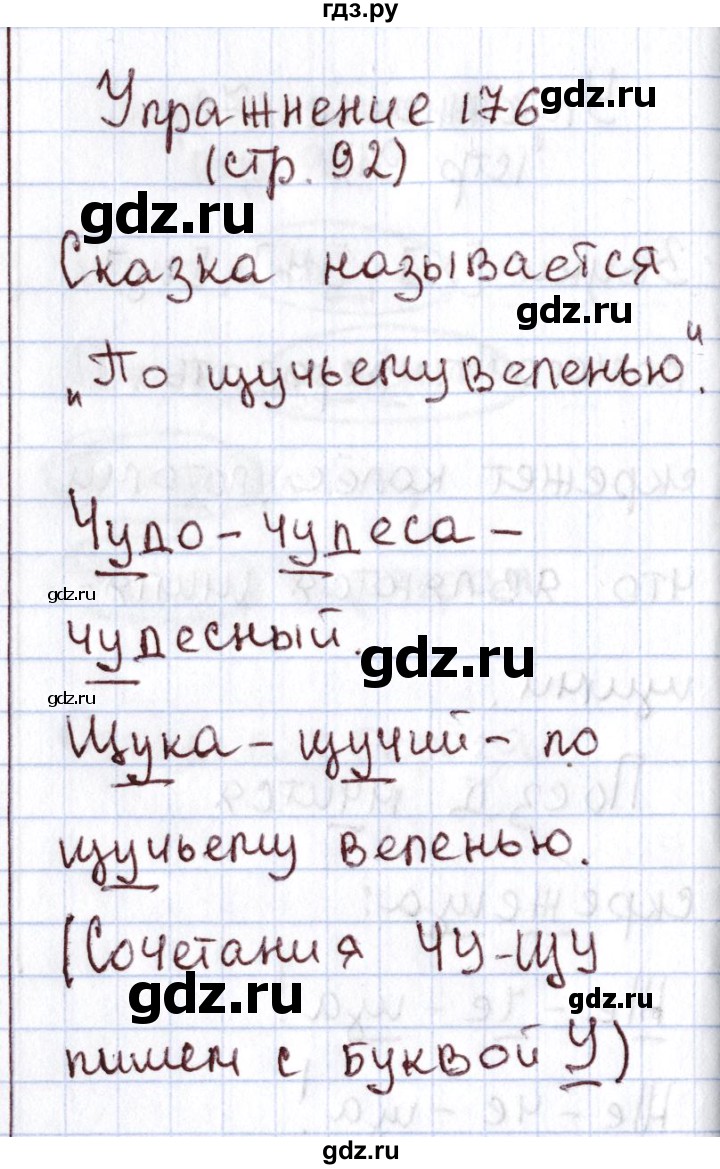 гдз.ру
Упражнение 176
gdz.ru
(стр. 92)
gdz.ru
Сказка называется
gdz.ru
"По щучьему веленью".
Чудо - чудеса -
gdz.ru
чудесный.
gdz.ru
gdz.ru
Щука - щучий - по
щучьему веленью.
(Сочетания ЧУ-ЩУ
gdz.ru
gdz.ru
пишем с буквой У)
gdz.ru